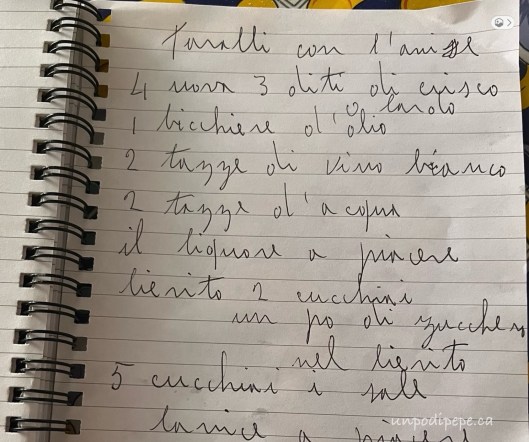 Taralli con l'anise
4 uova 3 diti di crisco
o lardo
1 bicchiere d'olio
2 tazze di vino bianco
2 tazze d'acqua
il liquore a piacere
lievito 2 cucchini
un po di zucchero
nel lievito
5 cucchini i sale
a piacere
unpodipepe.ca